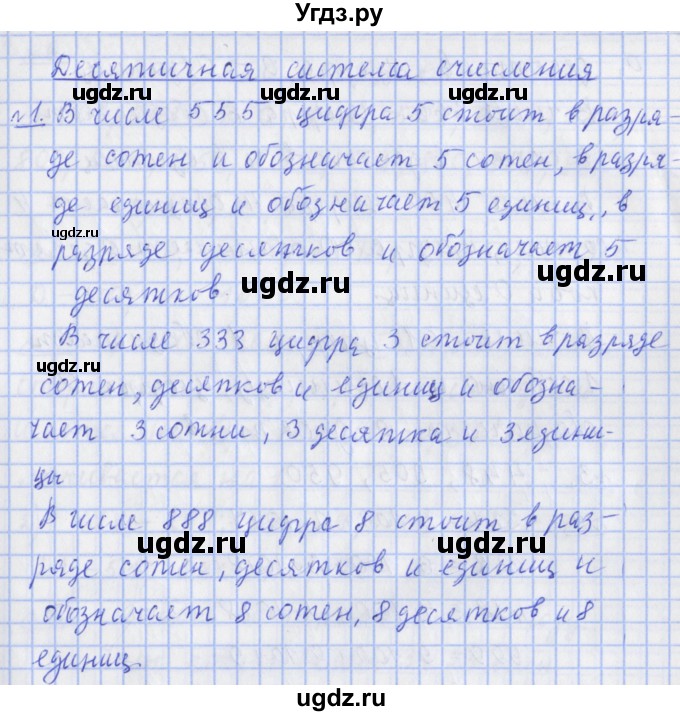 Угдз.ру
Десятичная система счисления
ugdz.ru ugdz.ru ugdz.ru
№1. В числе 555 цифра 5 стоит в разря-
де сотен и обозначает 5 сотен, в разря-
де единиц и обозначает 5 единиц, в
ugdz.ru
разряде десятков и обозначает 5
ugdz.ru ugdz.ru
десятков.
В числе 333 цифра 3 стоит в разряде
ugdz.ru
сотен, десятков и единиц и обозна-
чает 3 сотни, 3 десятка и 3 едини-
цы
В числе 888 цифра 8 стоит в раз-
ugdz.ru ugdz.ru ugdz.ru
ряде сотен, десятков и единиц и
обозначает 8 сотен, 8 десятков и 8
единиц.
ugdz.ru